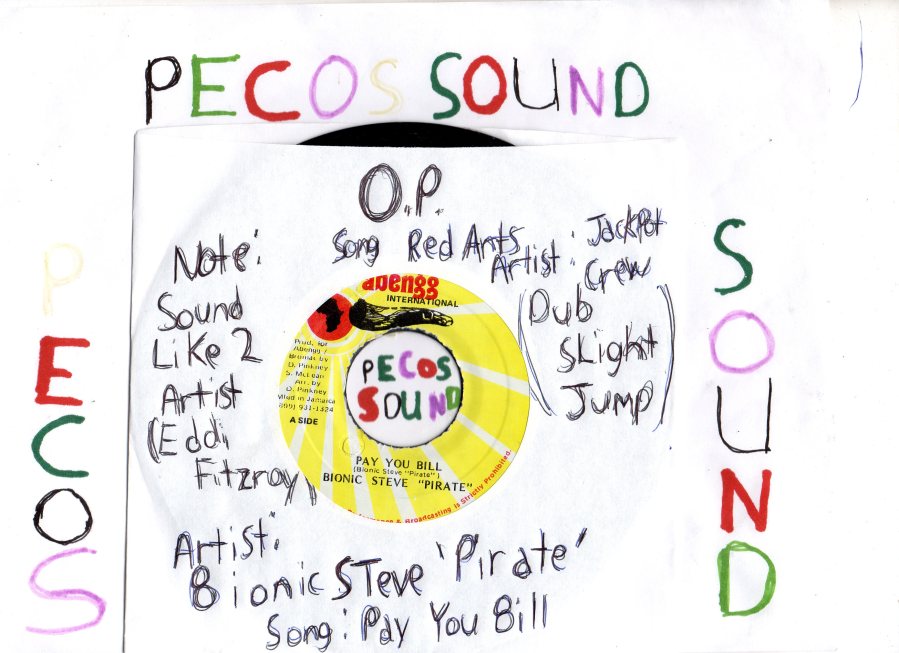 PECOS SOUND
O.P.
Song Red Ants
Artist: Jackpot
Crew
(Dub
Slight
Jump)
Note:
Sound
Like 2
Artist
(Eddi
Fitzroy)
PECOS
SOUND
abengg
INTERNATIONAL
Prod. for
Abengg /
Bromac by
D. Pinkney
S. McLean
Arr. by
D. Pinkney
Mfed in Jamaica
(899) 931-1324
A SIDE
PECOS
SOUND
PAY YOU BILL
(Bionic Steve "Pirate")
BIONIC STEVE "PIRATE"
& Broadcasting is Strictly Prohibited.
Artist:
Bionic STeve 'Pirate'
Song: Pay You Bill